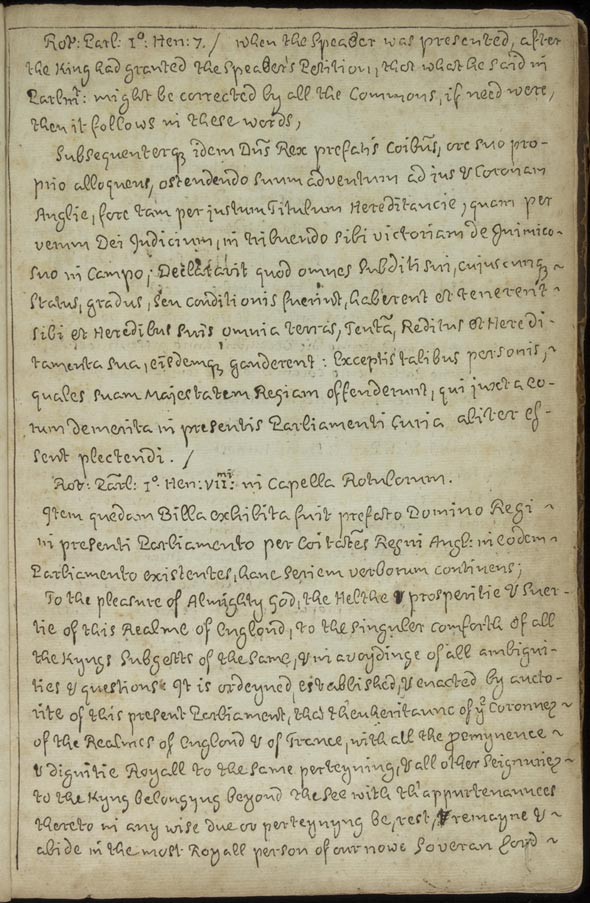 Rot: Parl: 1º. Hen: 7. / when the Speaker was presented, after
the King had granted the Speaker's Petition, that what he said in
Parlmt: might be corrected by all the Commons, if need were,
then it follows in these words,
Subsequenterq idem Dn̄s Rex prefatis Coibus̄, ore suo pro-
prio alloquens, ostendendo suum adventum ad ius & Coronam
Anglie, fore tam per justum Titulum Hereditancie, quam per
verum Dei Judicium, in tribuendo sibi victoriam de Inimico
suo in Campo; Declaravit quod omnes Subditi sui, cujuscunq ~
Status, gradus, seu conditionis fuerint, haberent et tenerent ~
sibi et Heredibus suis omnia terras, Tenta, Reditus et Heredi-
tamenta sua, eisdemq gauderent: Exceptis talibus personis, ~
quales suam Majestatem Regiam offenderunt, qui juxta eo-
rum demerita in presentis Parliamenti Curia aliter es-
sent plectendi. /
Rot: Parl: 1º. Hen: viimi: in Capella Rotulorum.
Item quedam Billa exhibita fuit prefato Domino Regi ~
in presenti Parliamento per Coitates̄ Regni Angl: in eodem ~
Parliamento existentes, hanc seriem verborum continens;
To the pleasure of Almighty God, the Helthe & prosperitie & Suer-
tie of this Realme of England, to the singuler comforth of all
the Kyngs Subgetts of the same, & in avoydinge of all ambigui-
ties & questions. It is ordeyned established, & enacted by aucto-
rite of this present Parliament, that thenheritaunc of ye Coronnez ~
of the Realmes of England & of France, with all the preminence ~
& dignitie Royall to the same perteyning, & all other Seignuriez ~
to the Kyng belongyng beyond the See with th'appurtenannces
thereto in any wise due or perteynyng be, rest, & remayne & ~
abide in the most Royall person of our nowe Soveran Lord ~